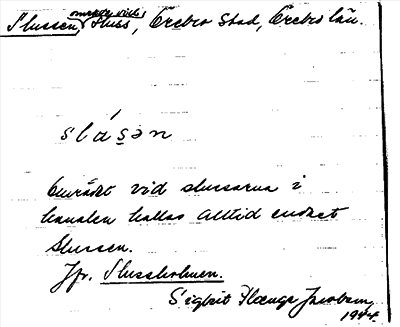 området vid
Slussen, Sluss, Örebro Stad, Örebro län.
slúsən
Området vid slussarna i
kanalen kallas alltid endast
Slussen.
Jfr. Slussholmen.
Sigbrit Plænge Jacobson
1944